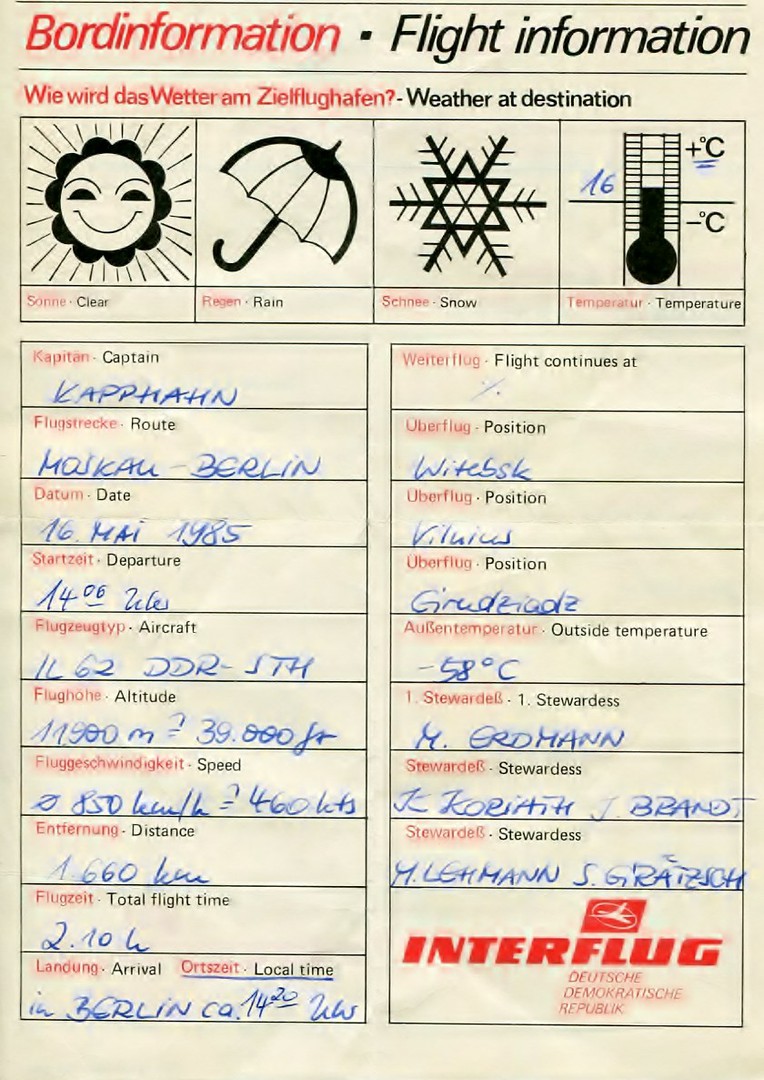 Bordinformation · Flight information
Wie wird das Wetter am Zielflughafen? - Weather at destination
16 +°C
-°C
Sonne · Clear
Regen · Rain
Schnee · Snow
Temperatur · Temperature
Kapitän · Captain
KAPPHAHN
Flugstrecke · Route
MOSKAU - BERLIN
Datum · Date
16. MAI 1985
Startzeit · Departure
14 06 Uhr
Flugzeugtyp · Aircraft
IL 62 DDR-STH
Flughöhe · Altitude
11900 m ≙ 39.000 ft
Fluggeschwindigkeit · Speed
ø 850 km/h ≙ 460 kts
Entfernung · Distance
1.660 km
Flugzeit · Total flight time
2.10 h
Landung · Arrival Ortszeit · Local time
in BERLIN ca. 14 20 Uhr
Weiterflug · Flight continues at
·/.
Überflug · Position
Witebsk
Überflug · Position
Vilnius
Überflug · Position
Grudziadz
Außentemperatur · Outside temperature
-58°C
1. Stewardeß · 1. Stewardess
M. ERDMANN
Stewardeß · Stewardess
K KORIATH J. BRANDT
Stewardeß · Stewardess
M. LEHMANN S. GRÄTZSCH
INTERFLUG
DEUTSCHE
DEMOKRATISCHE
REPUBLIK